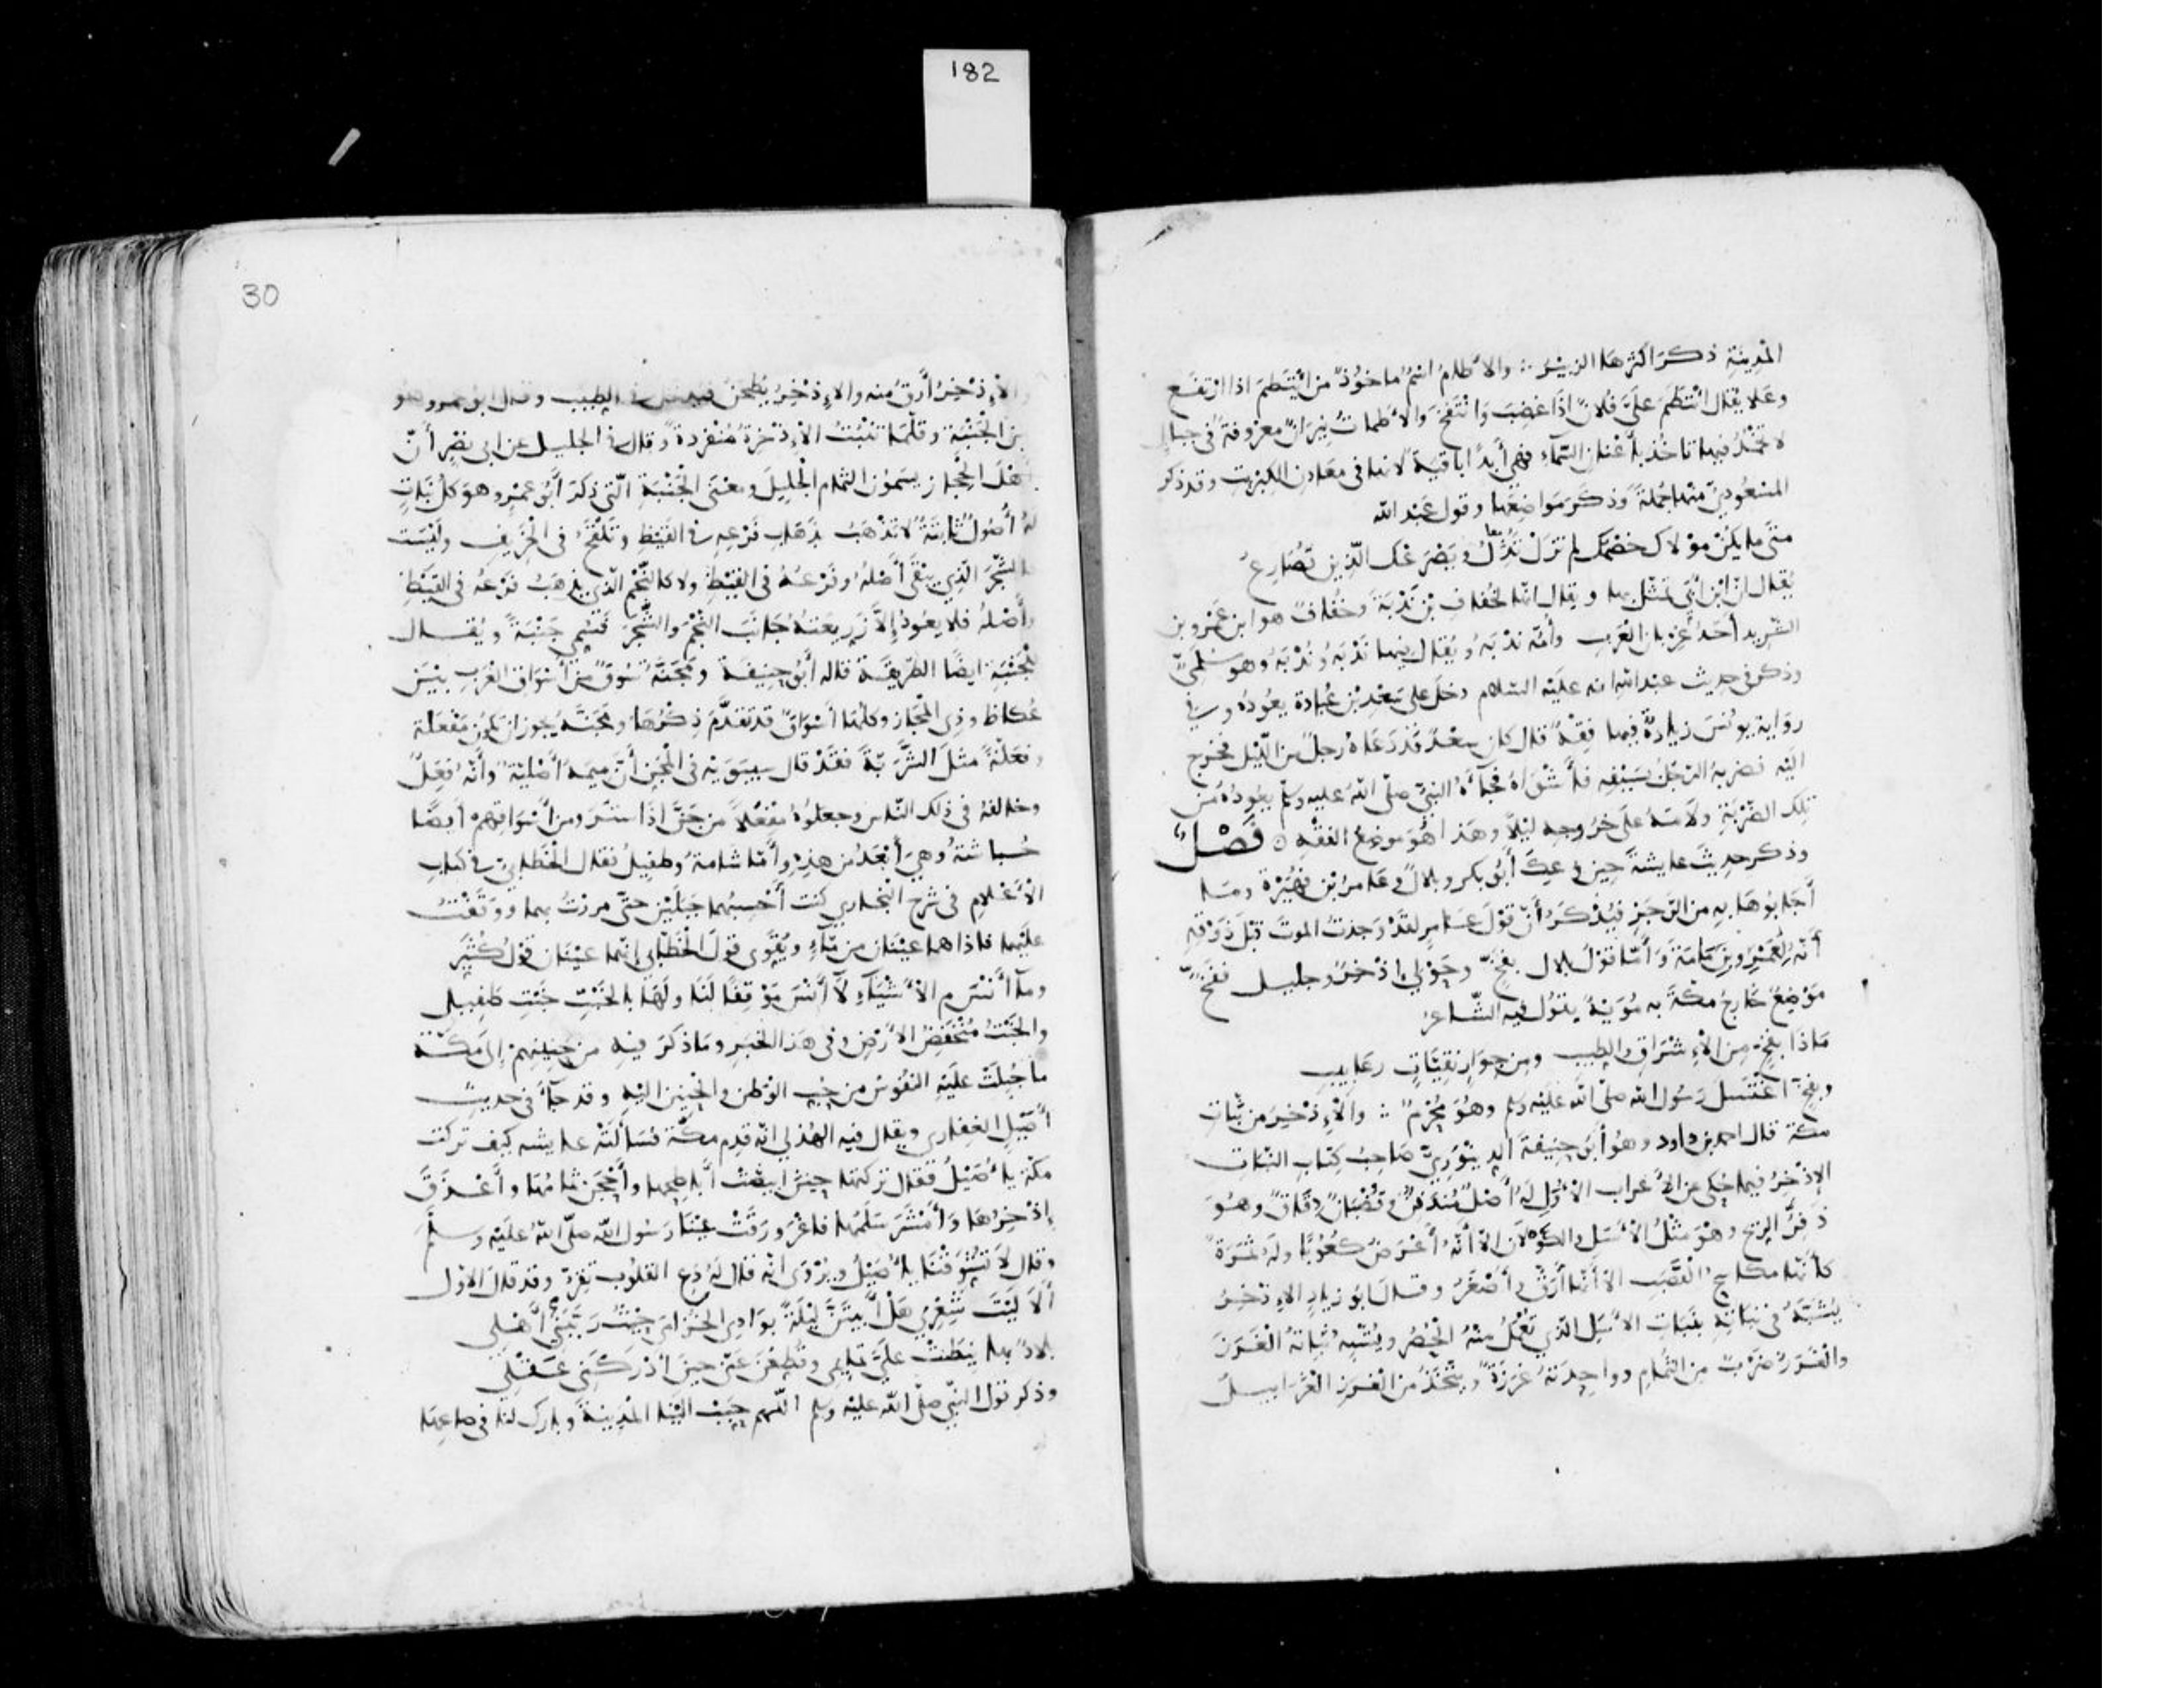 182
المدينة ذكر اكثرها الزبير ؞ والأطام اسمٌ ماخوذ من ائتطم اذا ارتفع
وعلا يقال ائتطم عليّ فلان اذا غضب وانتفخ والأطمات نيران معروفة في جبال
لا تخمد فيها تاخذ بأعنان السّماء فهي أبدًا باقية لانها في معادن الكبريت وقد ذكر
المسعودي منها جملة وذكر مواضعها وقول عبد الله
متى ما يكن مولاك خصمك لم تزل تذل ويصرعك الذين تصارع
يقال ان ابن ابي تمثل بها ويقال انها لخفاف بن ندبة وخفاف هو ابن عمرو بن
الشريد أحد غربان العرب وأمه ندبة ويقال فيها نَدْبة ونُدْبة وهو سلمي
وذكر في حديث عبد الله انه عليه السلام دخل على سعد بن عبادة يعوده وفي
رواية يونس زيادة فيها فقه قال كان سعد قد دعاه رجل من الليل فخرج
اليه فضربه الرجل بسيفه فأشواه فجاءه النبي صلى الله عليه وسلم يعوده من
تلك الضربة ولامه على خروجه ليلاً وهذا هو موضع الفقه ⊙ فصل
وذكر حديث عايشة حين وعك أبو بكر وبلال وعامر بن فهيرة وما
أجابوها به من الرجز فيذكر أن قول عامر لقد وجدت الموت قبل ذوقه
أنه لعمرو بن مامة وأما قول بلال بفخ وحولي اذخر وجليل ففخ
موضع خارج مكة به مويه يقول فيه الشاعر
ماذا بفخ من الإشراق والطيب ومن جوار نقيات رعابيب
وبفخ اغتسل رسول الله صلى الله عليه وسلم وهو محرم ؞ والإذخر من نبات
مكة قال احمد بن داود وهو أبو حنيفة الدينوري صاحب كتاب النبات
الإذخر فيما حكى عن الأعراب الأول له أصل مندفن وقضبان دقاق وهو
ذفر الريح وهو مثل الأسل الكولان الا أنه أعرض كعوبا وله ثمرة
كأنها مكاسح القصب الا أنها أرق وأصغر وقال أبو زياد الإذخر
يشبه في نباته بنبات الأسل الذي تعمل منه الحصر ويشبه نباته الغرز
والغرز ضرب من الثمام وواحدته غرزة ويتخذ من الغرز الغرابيل
30
والإذخر أرق منه والإذخر يطحن فيدخل في الطيب وقال ابو عمرو هو
من الجنبة وقلما تنبت الإذخرة منفردة وقال في الجليل عن ابي نصر أن
أهل الحجاز يسمون الثمام الجليل ومعنى الجنبة التي ذكر أبو عمرو هو كل نبات
له أصول ثابتة لا تذهب بذهاب فرعه في القيظ وتلقح في الخريف وليست
كالشجر الذي يبقى أصله وفرعه في القيظ ولا كالنجم الذي يذهب فرعه في القيظ
وأصله فلا يعود إلا زريعته جانب النجم والشجر فسمي جنبة ويقال
للجنبة ايضا الطريفة قاله أبو حنيفة ومجنة سوق من أسواق العرب بين
عكاظ وذي المجاز وكلها أسواق قد تقدم ذكرها ومجنة يجوز ان تكون مفعلة
وفعلة مثل الشربة فقد قال سيبويه في المجن أن ميمه أصلية وأنه فعل
وخالفه في ذلك الناس وجعلوه مفعلا من جن اذا ستر ومن أسواقهم أيضًا
حباشة وهي أبعد من هذه وأما شامة وطفيل فقال الخطابي في كتاب
الأعلام في شرح البخاري كنت أحسبهما جبلين حتى مررت بهما ووقفت
عليهما فاذا هما عينان من ماء ويقوي قول الخطابي انهما عينان قول كثير
وما أنس م الأشياء لا أنس موقفا لنا ولها بالخبت خبت طفيل
والخبت منخفض الأرض وفي هذا الخبر وما ذكر فيه من حنينهم إلى مكة
ما جبلت عليه النفوس من حب الوطن والحنين اليه وقد جاء في حديث
أصيل الغفاري ويقال فيه الهذلي انه قدم مكة فسألته عايشه كيف تركت
مكة يا أصيل فقال تركتها حين ابيضت أباطحها وأحجن ثمامها وأعذق
إذخرها وأمشر سلمها فاغرورقت عينا رسول الله صلى الله عليه وسلم
وقال لا تشوفنا يا أصيل ويروى انه قال له دع القلوب تقر وقد قال الاول
ألا ليت شعري هل أبيتن ليلة بوادي الخزامى حيث ربتني أهلي
بلاد بها نيطت علي تمايمي وقطعن عني حين أدركني عقلي
وذكر قول النبي صلى الله عليه وسلم اللهم حبب الينا المدينة وبارك لنا في صاعها